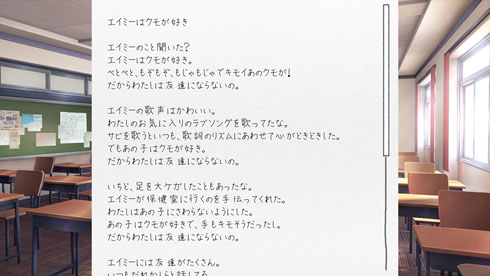 エイミーはクモが好き
エイミーのこと聞いた?
エイミーはクモが好き。
べとべと、もぞもぞ、もじゃもじゃでキモイあのクモが!
だからわたしは友達にならないの。
エイミーの歌声はかわいい。
わたしのお気に入りのラブソングを歌ってたな。
サビを歌うといつも、歌詞のリズムにあわせて心がどきどきした。
でもあの子はクモが好き。
だからわたしは友達にならないの。
いちど、足を大ケガしたこともあったな。
エイミーが保健室に行くのを手伝ってくれた。
わたしはあの子にさわらないようにした。
あの子はクモが好きで、手もキモそうだったし。
だからわたしは友達にならないの。
エイミーには友達がたくさん。
いつもだれかしらと話してる。